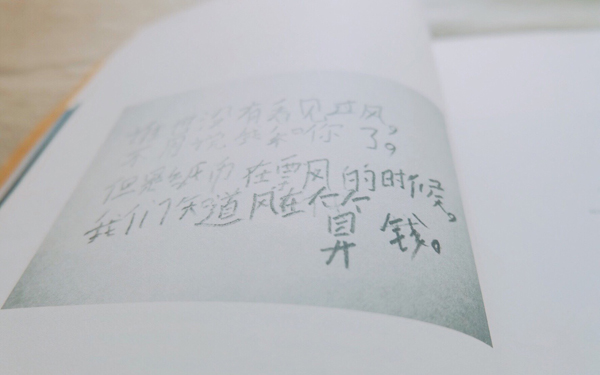 谁也没有看见过风，
不用说我和你了，
但是纸币在飘的时候。
我们知道风在算钱。